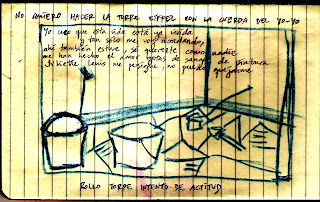 NO QUIERO HACER LA TORRE EIFFEL CON LA CUERDA DEL YO-YO
Yo creo que esta vida está ya vivida
y tan sólo me voy acordando,
ahí también estuve, sé quererte como nadie
me han hecho el amor gotas de sangre de pintura
Juliette Lewis me persigue, no puedo quejarme
ROLLO TORPE INTENTO DE ACTITUD